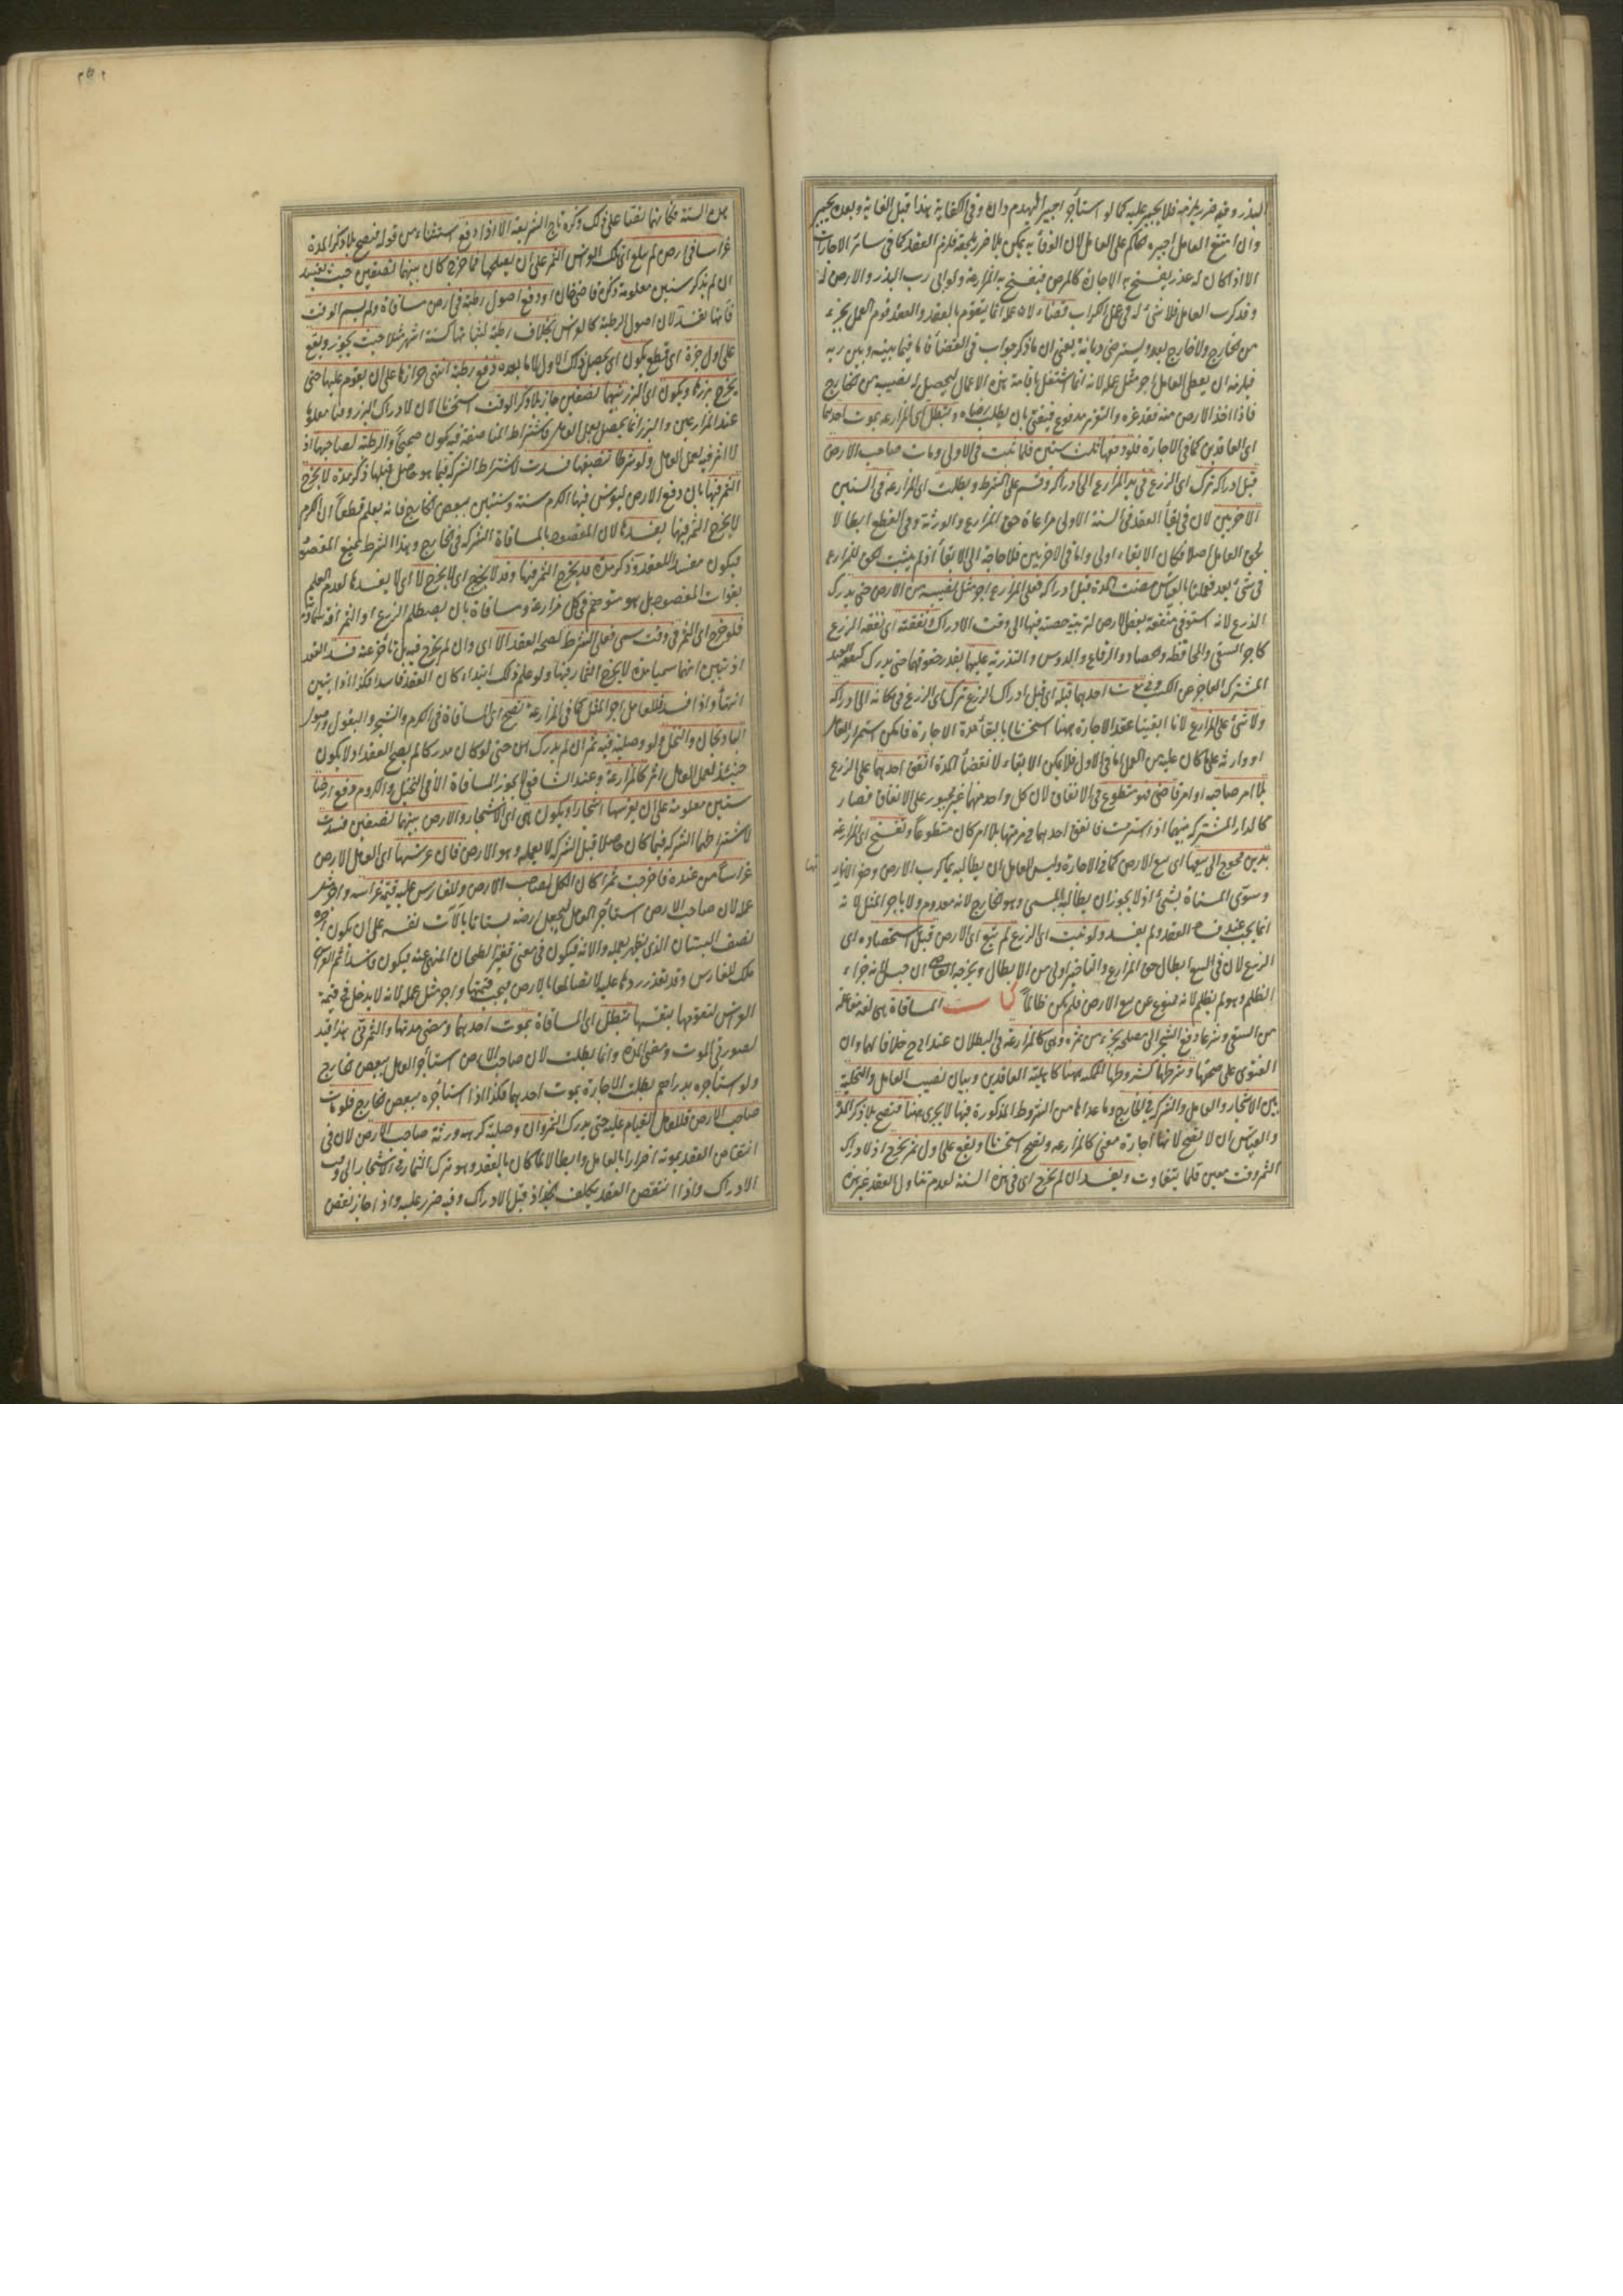 البذر وفيه ضرر يلزمه فلا يجبر عليه كما لو استأجر اجيرا ليهدم داره وفى الكفاية هذا قبل القائه وبعده يجبر
وان امتنع العامل اجبره الحاكم على العمل لان الوفاء به يمكن بلا ضرر يلحقه فلزم العقد كما فى سائر الاجارات
الا اذا كان له عذر يفسخ به الاجارة كالمرض فيفسخ به المزارعة ولو ابى رب البذر والارض له
وقد كرب العامل فلا شئ له فى عمل الكراب قضاء لان عمله انما يتقوم بالعقد والعقد قوم العمل بجزء
من الخارج ولا خارج بعد ويسترضى ديانة يعنى ان ما ذكر جواب فى القضاء فاما فيما بينه وبين ربه
فيلزمه ان يعطى العامل اجر مثل عمله لانه انما اشتغل باقامة هذه الاعمال ليحصل له نصيبه من الخارج
فاذا اخذ الارض منه فقد غره والتغرير مدفوع فيفتى بان يطلب رضاه وتبطل اى المزارعة بموت احدهما
اى العاقدين كما فى الاجارة فلو دفعها ثلث سنين فلما نبت فى الاولى ومات صاحب الارض
قبل ادراكه ترك اى الزرع فى يد المزارع الى ادراكه وقسم على الشرط وبطلت اى المزارعة فى السنين
الاخريين لان فى ابقاء العقد فى السنة الاولى مراعاة حق المزارع والورثة وفى القطع ابطالا
لحق العامل اصلا فكان الابقاء اولى واما فى الاخريين فلا حاجة الى الابقاء اذ لم يثبت الحق للمزارع
فى شئ بعد فعملنا بالقياس مضت المدة قبل ادراكه فعلى المزارع اجر مثل نصيبه من الارض حتى يدرك
الزرع لانه استوفى منفعة بعض الارض لتربية حصته فيها الى وقت الادراك ونفقته اى نفقة الزرع
كاجر السقى والمحافظة والحصاد والرفاع والدوس والتذرية عليهما بقدر حقوقهما حتى يدرك كنفقة العبد
المشترك العاجز عن الكسب وفى موت احدهما قبله اى قبل ادراك الزرع ترك اى الزرع فى مكانه الى ادراكه
ولا شئ على المزارع لانا ابقينا عقد الاجارة ههنا استحسانا بابقاء مدة الاجارة فامكن استمرار العامل
او وارثه على ما كان عليه من العمل اما فى الاول فلا يمكن الابقاء لانقضاء المدة انفق احدهما على الزرع
بلا امر صاحبه او امر قاض فهو متطوع فى الانفاق لان كل واحد منهما غير مجبور على الانفاق فصار
كالدار المشتركة بينهما اذا استرمت فانفق احدهما فى مرمتها بلا امر كان متطوعا وتفسخ اى المزارعة
بدين محوج الى بيعها اى بيع الارض كما فى الاجارة وليس للعامل ان يطالبه بما كرب الارض وحفر الانهار
وسوى المسناة بشئ اذ لا يجوز ان يطالبه بالمسمى وهو الخارج لانه معدوم ولا باجر المثل لانه
انما يجب عند فساد العقد ولم يفسد ولو نبت اى الزرع لم تبع اى الارض قبل استحصاده اى
الزرع لان فى البيع ابطال حق المزارع والتاخير اولى من الابطال ويخرجه القاضى ان حبس لانه جزاء
الظلم وهو لم يظلم لانه ممنوع عن بيع الارض فلم يكن ظالما كتاب المساقاة هى لغة مفاعلة
من السقى وشرعا دفع الشجر الى مصلحه بجزء من ثمره وهى كالمزارعة فى البطلان عند ابى ح خلافا لهما وان
الفتوى على صحتها وشرطها كشروطها الممكنة ههنا كاهلية العاقدين وبيان نصيب العامل والتخلية
بين الاشجار والعامل والشركة فى الخارج وما عداها من الشروط المذكورة فيها لا يجرى ههنا فتصح بلا ذكر المدة
والقياس ان لا تصح لانها اجارة معنى كالمزارعة وتصح استحسانا وتقع على اول ثمر يخرج اذ لادراك
الثمر وقت معين قلما يتفاوت ويفسد ان لم يخرج اى فى هذه السنة لعدم تناول العقد غير هذه
هذه السنة فكانهما اتفقا على ذلك ذكره تاج الشريعة الا اذا دفع استثناء من قوله فتصح بلا ذكر المدة
غراسا فى ارض لم يبلغ اى تلك الغرس الثمر على ان يصلحها فما خرج كان بينهما نصفين حيث يفسد
ان لم يذكر سنين معلومة ذكره قاضى خان او دفع اصول رطبة فى ارض مساقاة ولم يسم الوقت
فانها تفسد لان اصول الرطبة كالغرس بخلاف رطبة لنباتها كستة اشهر مثلا حيث يجوز ويقع
على اول جزة اى قطع يكون اى يحصل فى ذلك الاول لا ما بعده دفع رطبة انتهى جزازها على ان يقوم عليها حتى
يخرج بزرها ويكون اى البزر بينهما نصفين جاز بلا ذكر الوقت استحسانا لان لادراك البزر وقتا معلوما
عند المزارعين والبزر انما يحصل بعمل العامل فاشتراط المناصفة فيه يكون صحيحا والرطبة لصاحبها اذ
لا اثر فيه لعمل العامل ولو شرطا تنصيفها فسدت لاشتراط الشركة فيما هو حاصل قبلها ذكر مدة لا يخرج
الثمر فيها بان دفع الارض ليغرس فيها الكرم سنة وسنتين ببعض الخارج فانه يعلم قطعا ان الكرم
لا يخرج الثمر فيها يفسدها لان المقصود بالمساقاة الشركة فى الخارج وهذا الشرط يمنع المقصود
فيكون مفسدا للعقد وذكر مدة قد يخرج الثمر فيها وقد لا يخرج اى لا يخرج لا اى لا يفسدها لعدم العلم
بفوات المقصود بل هو متوهم فى كل مزارعة ومساقاة بان يصطلم الزرع او الثمر افة سماوية
فلو خرج اى الثمر فى وقت سمى فعلى الشرط لصحة العقد الا اى وان لم يخرج فيه بل تأخر عنه فسد العقد
اذ تبين انهما سميا مدة لا يخرج الثمار فيها ولو علم ذلك ابتداء كان العقد فاسدا فكذا اذا تبين
انتهاء واذا فسد فللعامل اجر المثل كما فى المزارعة تصح اى المساقاة فى الكرم والشجر والبقول واصول
الباذنجان والنخل ولو وصلية فيه ثمر ان لم يدرك حتى لو كان مدركا لم يصح العقد اذ لا يكون
حينئذ لعمل العامل اثر كالمزارعة وعند الشافعى لا يجوز المساقاة الا فى النخيل والكروم دفع ارضا
سنين معلومة على ان يغرسها اشجارا ويكون هى اى الاشجار والارض بينهما نصفين فسدت
لاشتراطهما الشركة فيما كان حاصلا قبل الشركة لا بعمله وهو الارض فان غرسها اى العامل الارض
غراسا من عنده فاخرجت ثمرا كان الكل لصاحب الارض وللغارس عليه قيمة غراسه واجر مثل
عمله لان صاحب الارض استأجر العامل ليجعل ارضه بستانا بالات نفسه على ان يكون اجره
نصف البستان الذى يظهر بعمله والاته فيكون فى معنى قفيز الطحان المنهى عنه فيكون فاسدا ثم الغراس
ملك للغارس وقد تعذر ردها عليه لاتصالها بالارض فيجب قيمتها واجر مثل عمله لانه لا يدخل فى قيمة
الغرس لتقومها بنفسها تبطل اى المساقاة بموت احدهما ومضى مدتها والثمر نى هذا قيد
لصورتى الموت ومضى المدة وانما بطلت لان صاحب الارض استأجر العامل ببعض الخارج
ولو استأجره بدراهم بطلت الاجارة بموت احدهما فكذا اذا استأجره ببعض الخارج فلو مات
صاحب الارض فللعامل القيام عليه حتى يدرك الثمر وان وصلية كره ورثة صاحب الارض لان فى
انتقاض العقد بموته اضرارا بالعامل وابطالا لما كان بالعقد وهو ترك الثمار فى الاشجار الى وقت
الادراك واذا انتقض العقد يكلف الجذاذ قبل الادراك وفيه ضرر عليه واذا جاز نقض